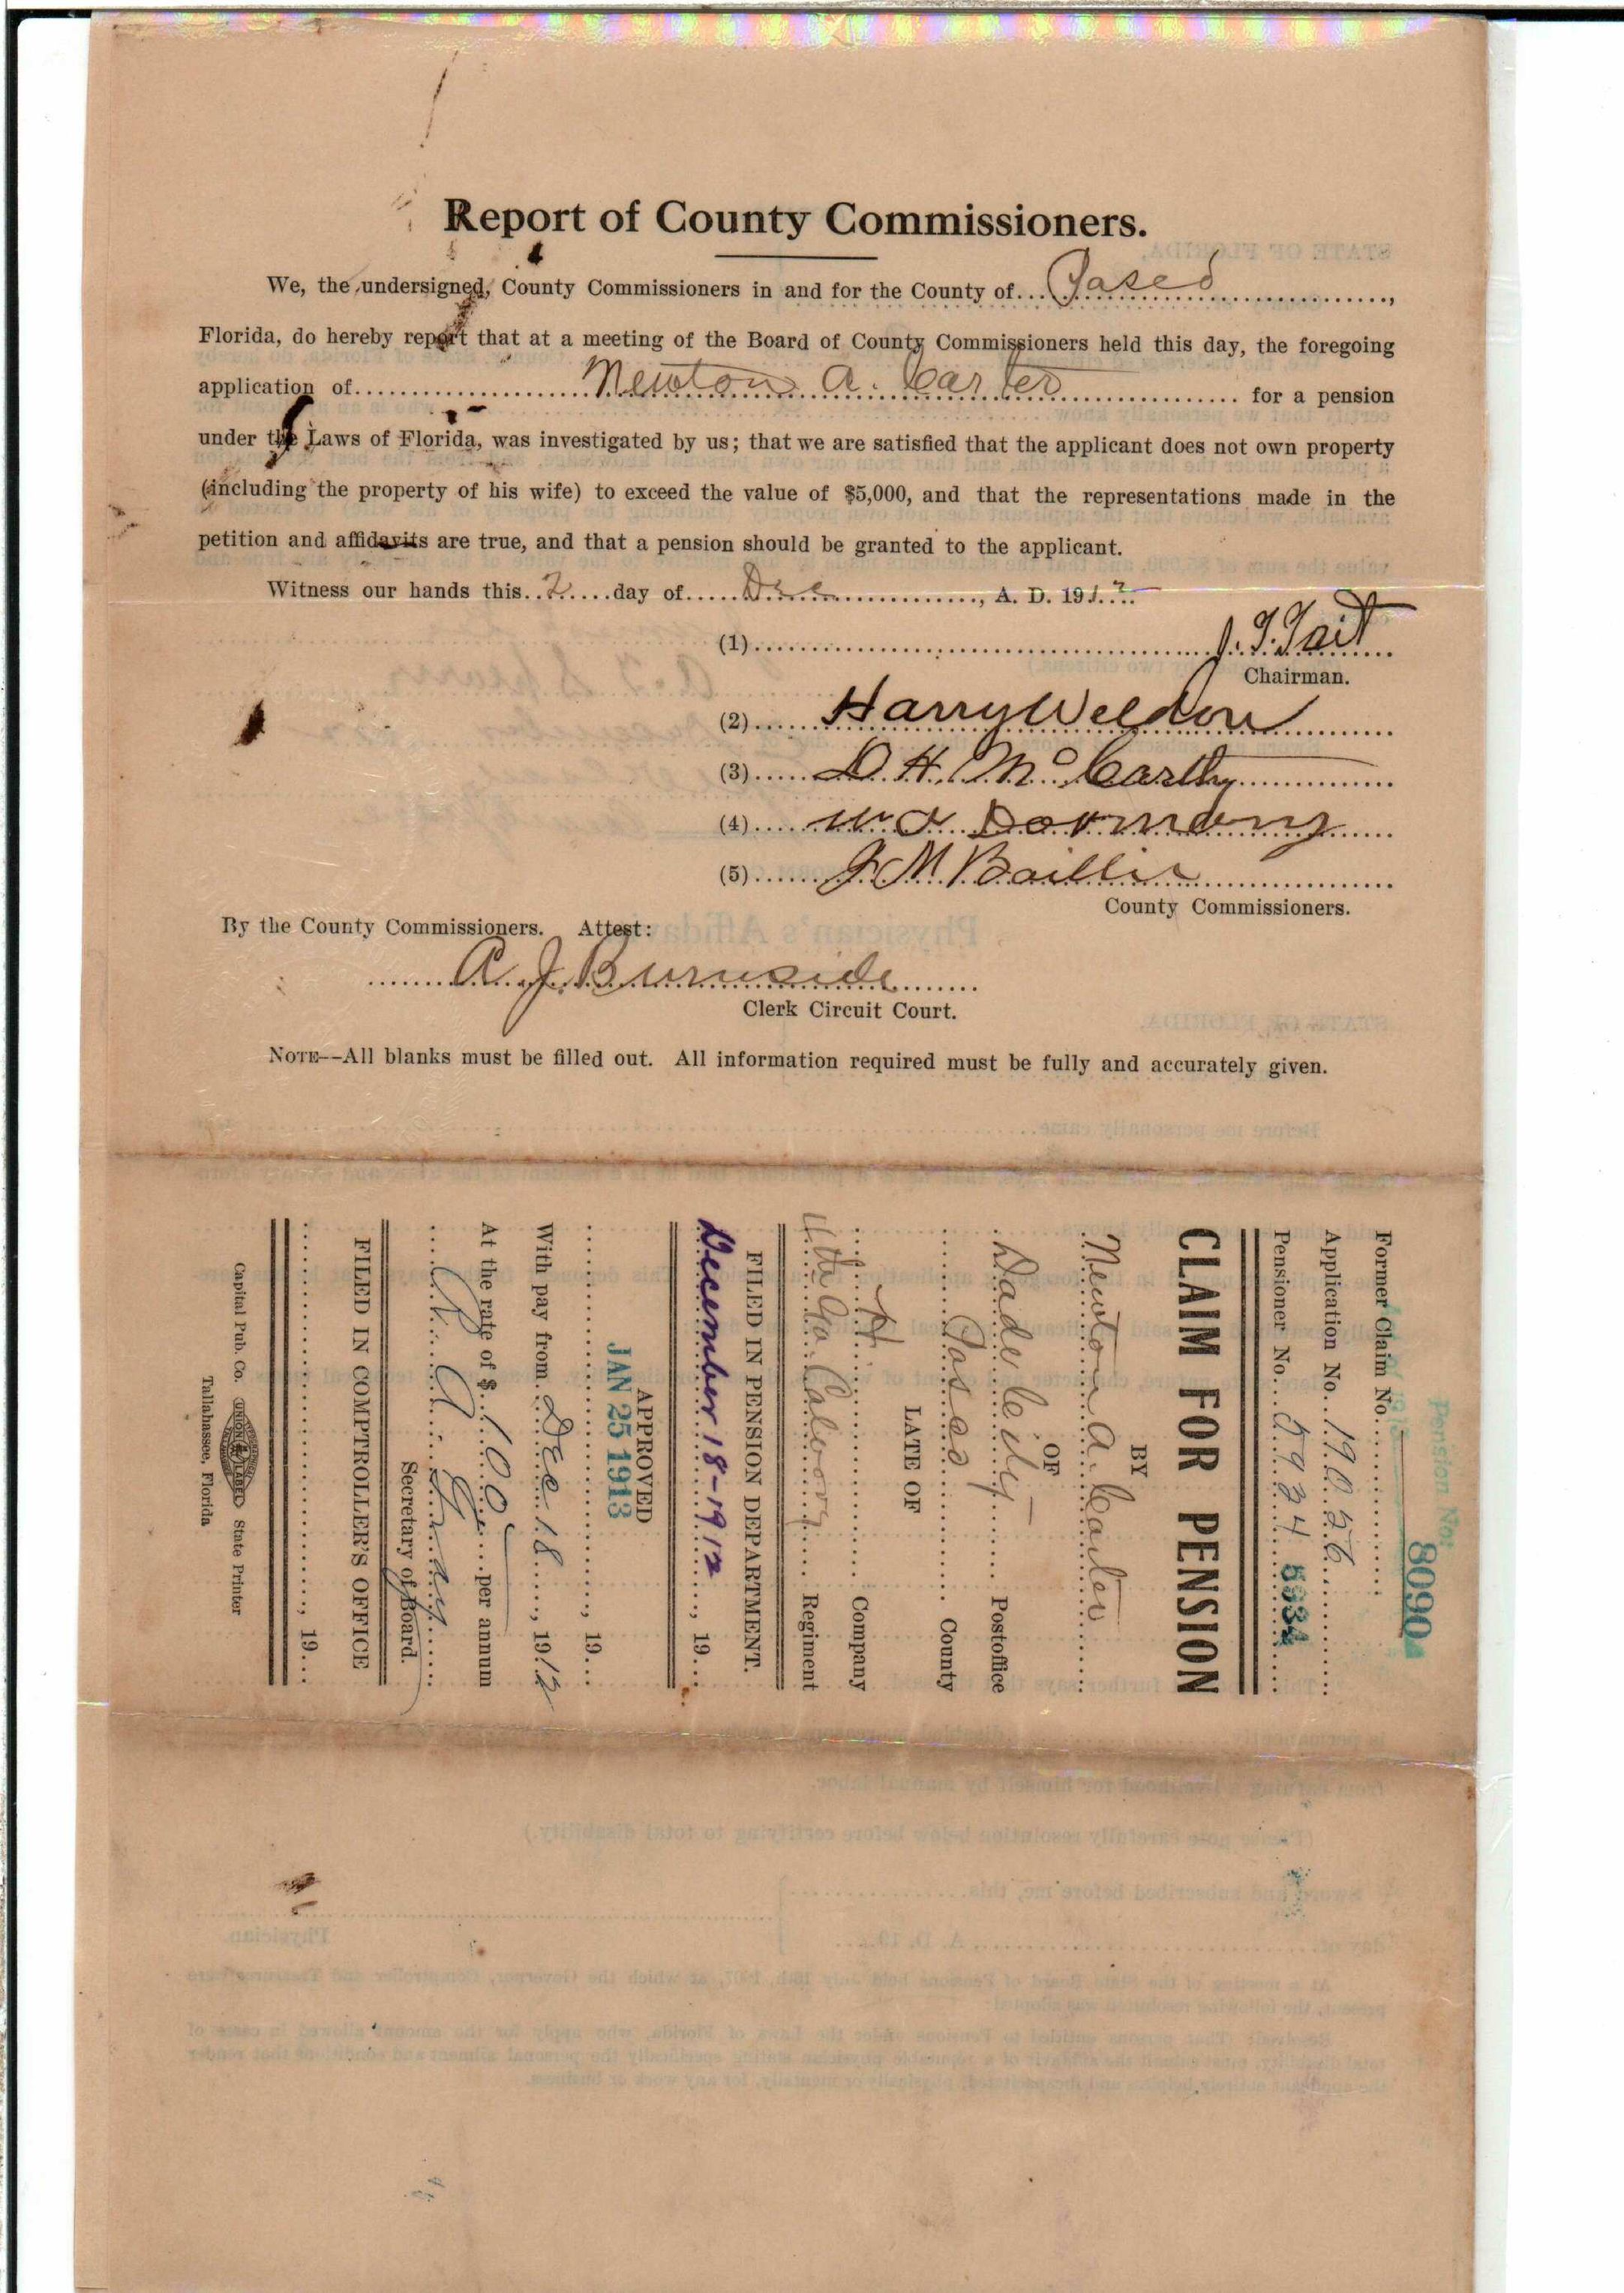 Report of County Commissioners.
We, the undersigned, County Commissioners in and for the County of Pasco,
Florida, do hereby report that at a meeting of the Board of County Commissioners held this day, the foregoing
application of Newton A. Carter for a pension
under the Laws of Florida, was investigated by us; that we are satisfied that the applicant does not own property
(including the property of his wife) to exceed the value of $5,000, and that the representations made in the
petition and affidavits are true, and that a pension should be granted to the applicant.
Witness our hands this 2 day of Dec, A. D. 191.2.
(1) J. T. Tait
Chairman.
(2) Harry Weldon
(3) D. H. McCarthy
(4) Dormany
(5) J M Baillie
County Commissioners.
By the County Commissioners. Attest:
A. J. Burnside
Clerk Circuit Court.
NOTE--All blanks must be filled out. All information required must be fully and accurately given.
Pension No.
8090
Former Claim No.
Application No. 19026
Pensioner No. 5934 5934
CLAIM FOR PENSION
BY
Newton A. Carter
OF
Dade City Postoffice
Pasco County
LATE OF
H Company
4th Ga. Calvary Regiment
FILED IN PENSION DEPARTMENT.
December 18-1912, 19
APPROVED
JAN 25 1913
, 19
With pay from Dec 18, 1912
At the rate of $ 100 per annum
Gray
Secretary of Board.
FILED IN COMPTROLLER'S OFFICE
, 19
Capital Pub. Co. State Printer
Tallahassee, Florida